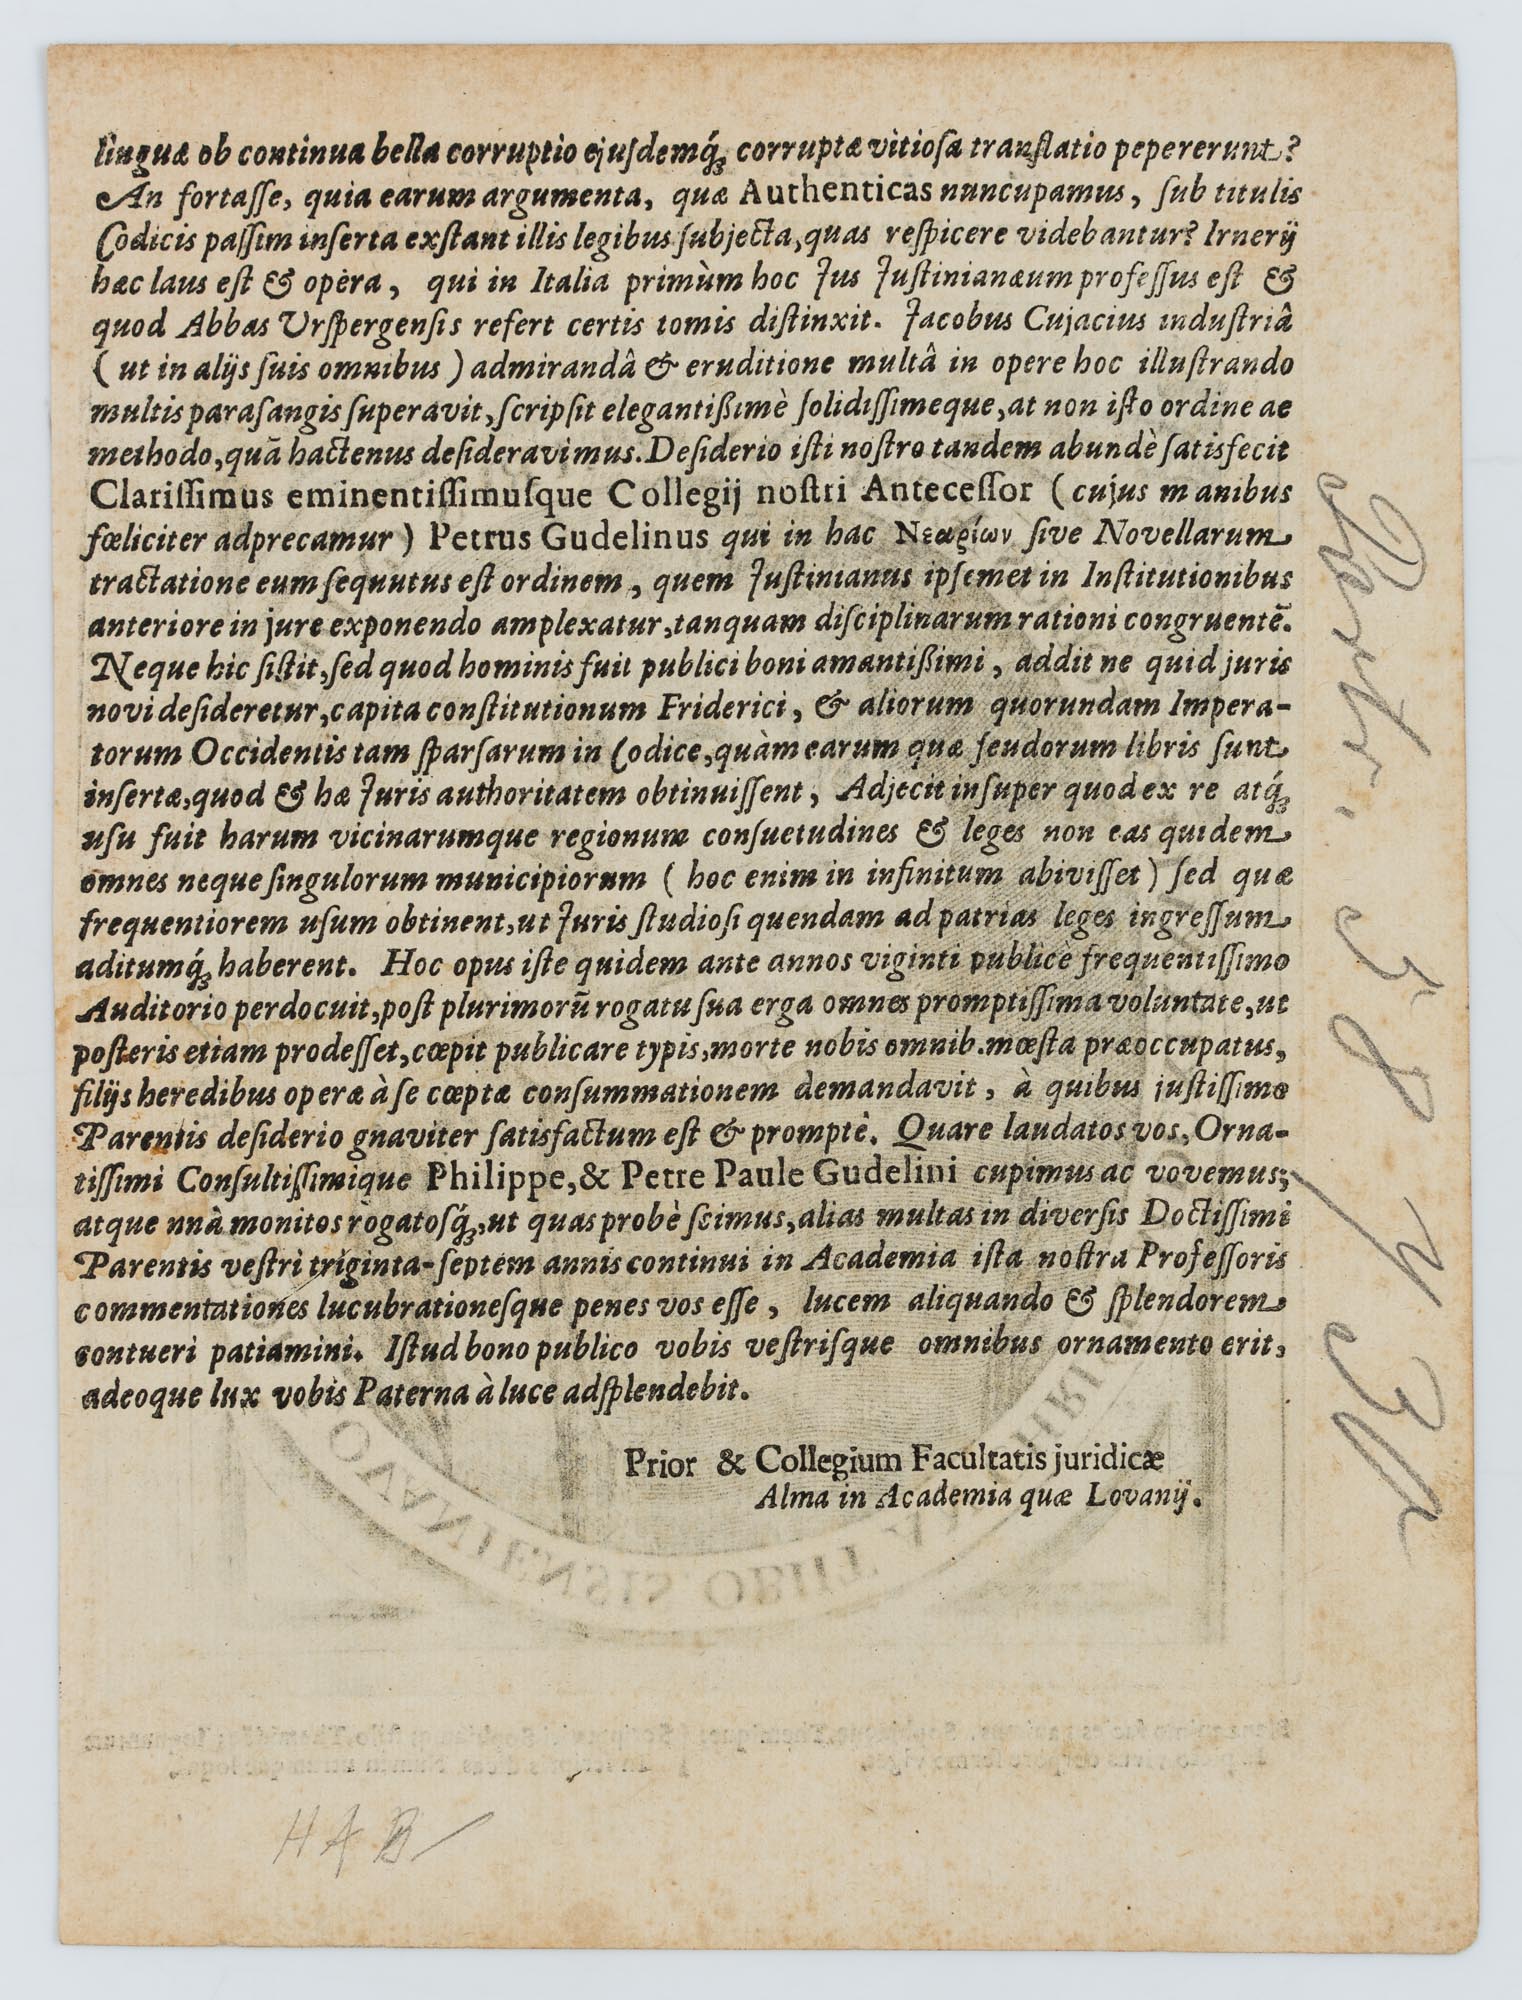 linguæ ob continua bella corruptio ejusdemq́; corruptæ vitiosa translatio pepererunt?
An fortasse, quia earum argumenta, quæ Authenticas nuncupamus, sub titulis
Codicis passim inserta exstant illis legibus subjecta, quas respicere videbantur? Irnerij
hæc laus est & opera, qui in Italia primùm hoc Jus Justinianæum professus est &
quod Abbas Urspergensis refert certis tomis distinxit. Jacobus Cujacius industriâ
( ut in alijs suis omnibus ) admirandâ & eruditione multâ in opere hoc illustrando
multis parasangis superavit, scripsit elegantißimè solidissimeque, at non isto ordine ac
methodo, quā hactenus desideravimus. Desiderio isti nostro tandem abundè satisfecit
Clarissimus eminentissimusque Collegij nostri Antecessor ( cujus manibus
fœliciter adprecamur ) Petrus Gudelinus qui in hac Νεαρίων sive Novellarum
tractatione eum sequutus est ordinem, quem Justinianus ipsemet in Institutionibus
anteriore in jure exponendo amplexatur, tanquam disciplinarum rationi congruentē.
Neque hic sistit, sed quod hominis fuit publici boni amantißimi, addit ne quid juris
novi desideretur, capita constitutionum Friderici, & aliorum quorundam Impera-
torum Occidentis tam sparsarum in Codice, quàm earum quæ feudorum libris sunt
insertæ, quod & hæ Juris authoritatem obtinuissent, Adjecit insuper quod ex re atq́;
usu fuit harum vicinarumque regionum consuetudines & leges non eas quidem
omnes neque singulorum municipiorum ( hoc enim in infinitum abivisset ) sed quæ
frequentiorem usum obtinent, ut Juris studiosi quendam ad patrias leges ingressum
aditumq́; haberent. Hoc opus iste quidem ante annos viginti publicè frequentissimo
Auditorio perdocuit, post plurimorū rogatu sua erga omnes promptissima voluntate, ut
posteris etiam prodesset, cœpit publicare typis, morte nobis omnib. mœsta præoccupatus,
filijs heredibus operæ à se cœptæ consummationem demandavit, à quibus justissimo
Parentis desiderio gnaviter satisfactum est & promptè. Quare laudatos vos, Orna-
tissimi Consultissimique Philippe, & Petre Paule Gudelini cupimus ac vovemus;
atque unà monitos rogatosq́;, ut quas probè scimus, alias multas in diversis Doctissimi
Parentis vestri triginta-septem annis continui in Academia ista nostra Professoris
commentationes lucubrationesque penes vos esse, lucem aliquando & splendorem
contueri patiamini. Istud bono publico vobis vestrisque omnibus ornamento erit,
adeoque lux vobis Paterna à luce adsplendebit.
Prior & Collegium Facultatis juridicæ
Alma in Academia quæ Lovanij.
HAB